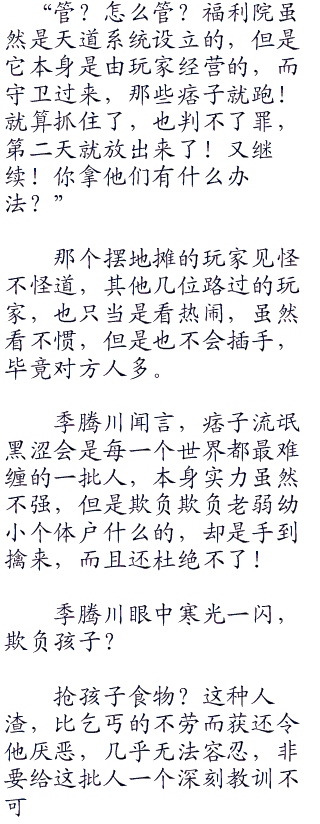 “管？怎么管？福利院虽
然是天道系统设立的，但是
它本身是由玩家经营的，而
守卫过来，那些痞子就跑！
就算抓住了，也判不了罪，
第二天就放出来了！又继
续！你拿他们有什么办
法？”
那个摆地摊的玩家见怪
不怪道，其他几位路过的玩
家，也只当是看热闹，虽然
看不惯，但是也不会插手，
毕竟对方人多。
季腾川闻言，痞子流氓
黑涩会是每一个世界都最难
缠的一批人，本身实力虽然
不强，但是欺负欺负老弱幼
小个体户什么的，却是手到
擒来，而且还杜绝不了！
季腾川眼中寒光一闪，
欺负孩子？
抢孩子食物？这种人
渣，比乞丐的不劳而获还令
他厌恶，几乎无法容忍，非
要给这批人一个深刻教训不
可